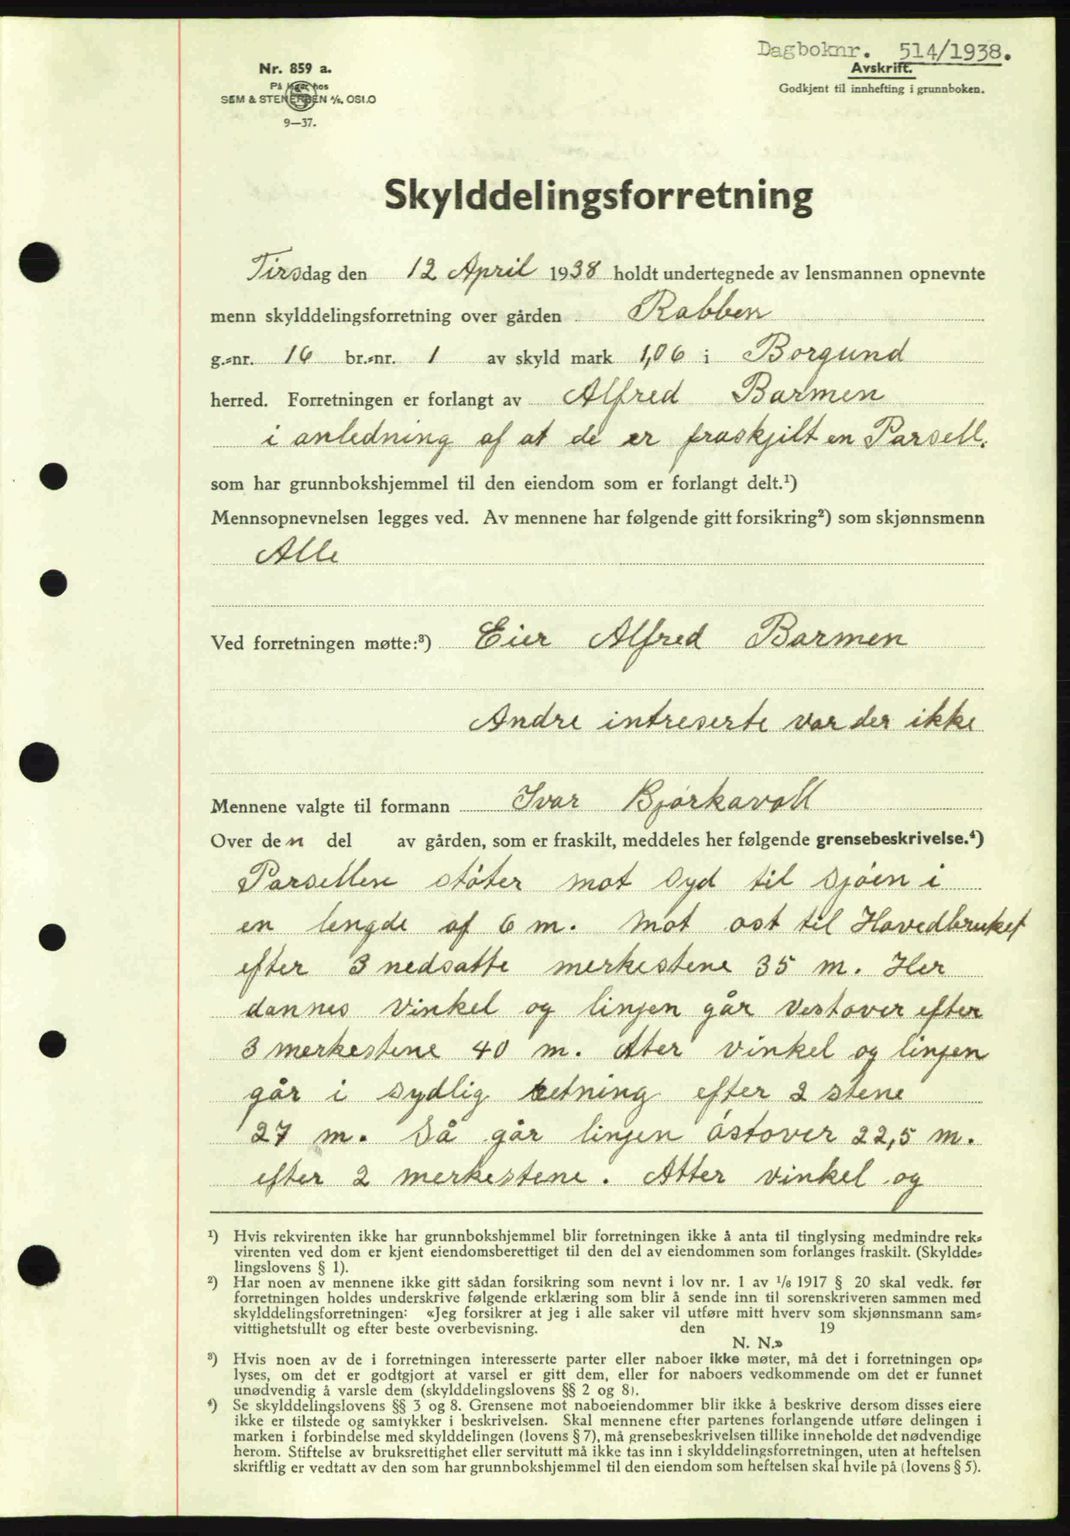 Dagboknr. 514/1938.
Nr. 859 a.
På lager hos
SEM & STENERSEN A/S, OSLO
9—37.
Avskrift.
Godkjent til innhefting i grunnboken.
Skylddelingsforretning
Tirsdag den 12 April 1938 holdt undertegnede av lensmannen opnevnte
menn skylddelingsforretning over gården Rabben
g.-nr. 16 br.-nr. 1 av skyld mark 1,06 i Borgund
herred. Forretningen er forlangt av Alfred Barmen
i anledning af at de er fraskjilt en Parsell.
som har grunnbokshjemmel til den eiendom som er forlangt delt.¹)
Mennsopnevnelsen legges ved. Av mennene har følgende gitt forsikring²) som skjønnsmenn
Alle
Ved forretningen møtte:³) Eier Alfred Barmen
Andre intreserte var der ikke
Mennene valgte til formann Ivar Bjørkavoll
Over den del av gården, som er fraskilt, meddeles her følgende grensebeskrivelse.⁴)
Parsellen støter mot syd til sjøen i
en lengde af 6 m. Mot ost til Hovedbruket
efter 3 nedsatte merkestene 35 m. Her
dannes vinkel og linjen går vestover efter
3 merkestene 40 m. Atter vinkel og linjen
går i sydlig retning efter 2 stene
27 m. Så går linjen østover 22,5 m.
efter 2 merkestene. Atter vinkel og
¹) Hvis rekvirenten ikke har grunnbokshjemmel blir forretningen ikke å anta til tinglysing medmindre rek-
virenten ved dom er kjent eiendomsberettiget til den del av eiendommen som forlanges fraskilt. (Skyldde-
lingslovens § 1).
²) Har noen av mennene ikke gitt sådan forsikring som nevnt i lov nr. 1 av 1/6 1917 § 20 skal vedk. før
forretningen holdes underskrive følgende erklæring som blir å sende inn til sorenskriveren sammen med
skylddelingsforretningen: «Jeg forsikrer at jeg i alle saker vil utføre mitt hverv som skjønnsmann sam-
vittighetsfullt og efter beste overbevisning. den 19
N. N.»
³) Hvis noen av de i forretningen interesserte parter eller naboer ikke møter, må det i forretningen op-
lyses, om det er godtgjort at varsel er gitt dem, eller for naboers vedkommende om det er funnet
unødvendig å varsle dem (skylddelingslovens §§ 2 og 8).
⁴) Se skylddelingslovens §§ 3 og 8. Grensene mot naboeiendommer blir ikke å beskrive dersom disses eiere
ikke er tilstede og samtykker i beskrivelsen. Skal mennene efter partenes forlangende utføre delingen i
marken i forbindelse med skylddelingen (lovens § 7), må grensebeskrivelsen tillike inneholde det nødvendige
herom. Stiftelse av bruksrettighet eller servitutt må ikke tas inn i skylddelingsforretningen, uten at heftelsen
skriftlig er vedtatt av den som har grunnbokshjemmel til den eiendom som heftelsen skal hvile på (lovens § 5).